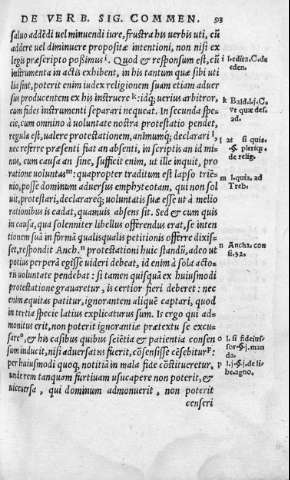 DE VERB. SIG. COMMEN. 93
saluo addẽdi uel minuendi iure, frustra his uerbis uti, cũ
addere uel diminuere propositæ intentioni, non nisi ex
legis præscripto possimus i. Quod & responsum est, cũ
instrumenta in actis exhibent, in his tantum quæ sibi uti
lia sint, poterit enim iudex religionem suam etiam aduer
sus producentem ex his instruere k: idq; uerius arbitror,
cum fides instrumenti separari nequeat. In secunda spe-
cie, cum omnino à uoluntate nostra protestatio pendet,
regula est, ualere protestationem, animumq; declarari l,
nec referre præsenti fiat an absenti, in scriptis an id mi-
nus, cum causa an sine, sufficit enim, ut ille inquit, pro
ratione uoluntas m: quapropter traditum est lapso trië
nio, posse dominum aduersus emphyteotam, qui non sol
uit, protestari, declarareq; uoluntatis suæ esse ut à melio
rationibus is cadat, quamuis absens sit. Sed & cum quis
in causa, qua solenniter libellus offerendus erat, se inten
tionem suã in formã qualisqualis petitionis offerre dixis-
set, respondit Anch. n protestationi huic standũ, adeo ut
petitis perperã egisse uideri debeat, id enim à sola acto-
ris uoluntate pendebat: si tamen quisquã ex huiusmodi
protestatione grauaretur, is certior fieri deberet: nec
enim æquitas patitur, ignorantem aliquẽ captari, quod
in tertia specie latius explicaturus sum. Is ergo qui ad-
monitus erit, non poterit ignorantiæ prætextu se excu-
sare o, & his casibus quibus sciẽtia & patientia consen
sum inducit, nisi aduersatus fuerit, cõsensisse cẽsebitur p:
per huiusmodi quoq; notitiã in mala fide cõstitueretur,
unde rem tanquam furtiuam usucapere non poterit, &
uiceuersa, qui dominum admonuerit, non poterit
censeri
i. l. edita. C. de
eden.
k Bald. l. j. C.
m l. quis. ad
Treb.
n Ancha. con